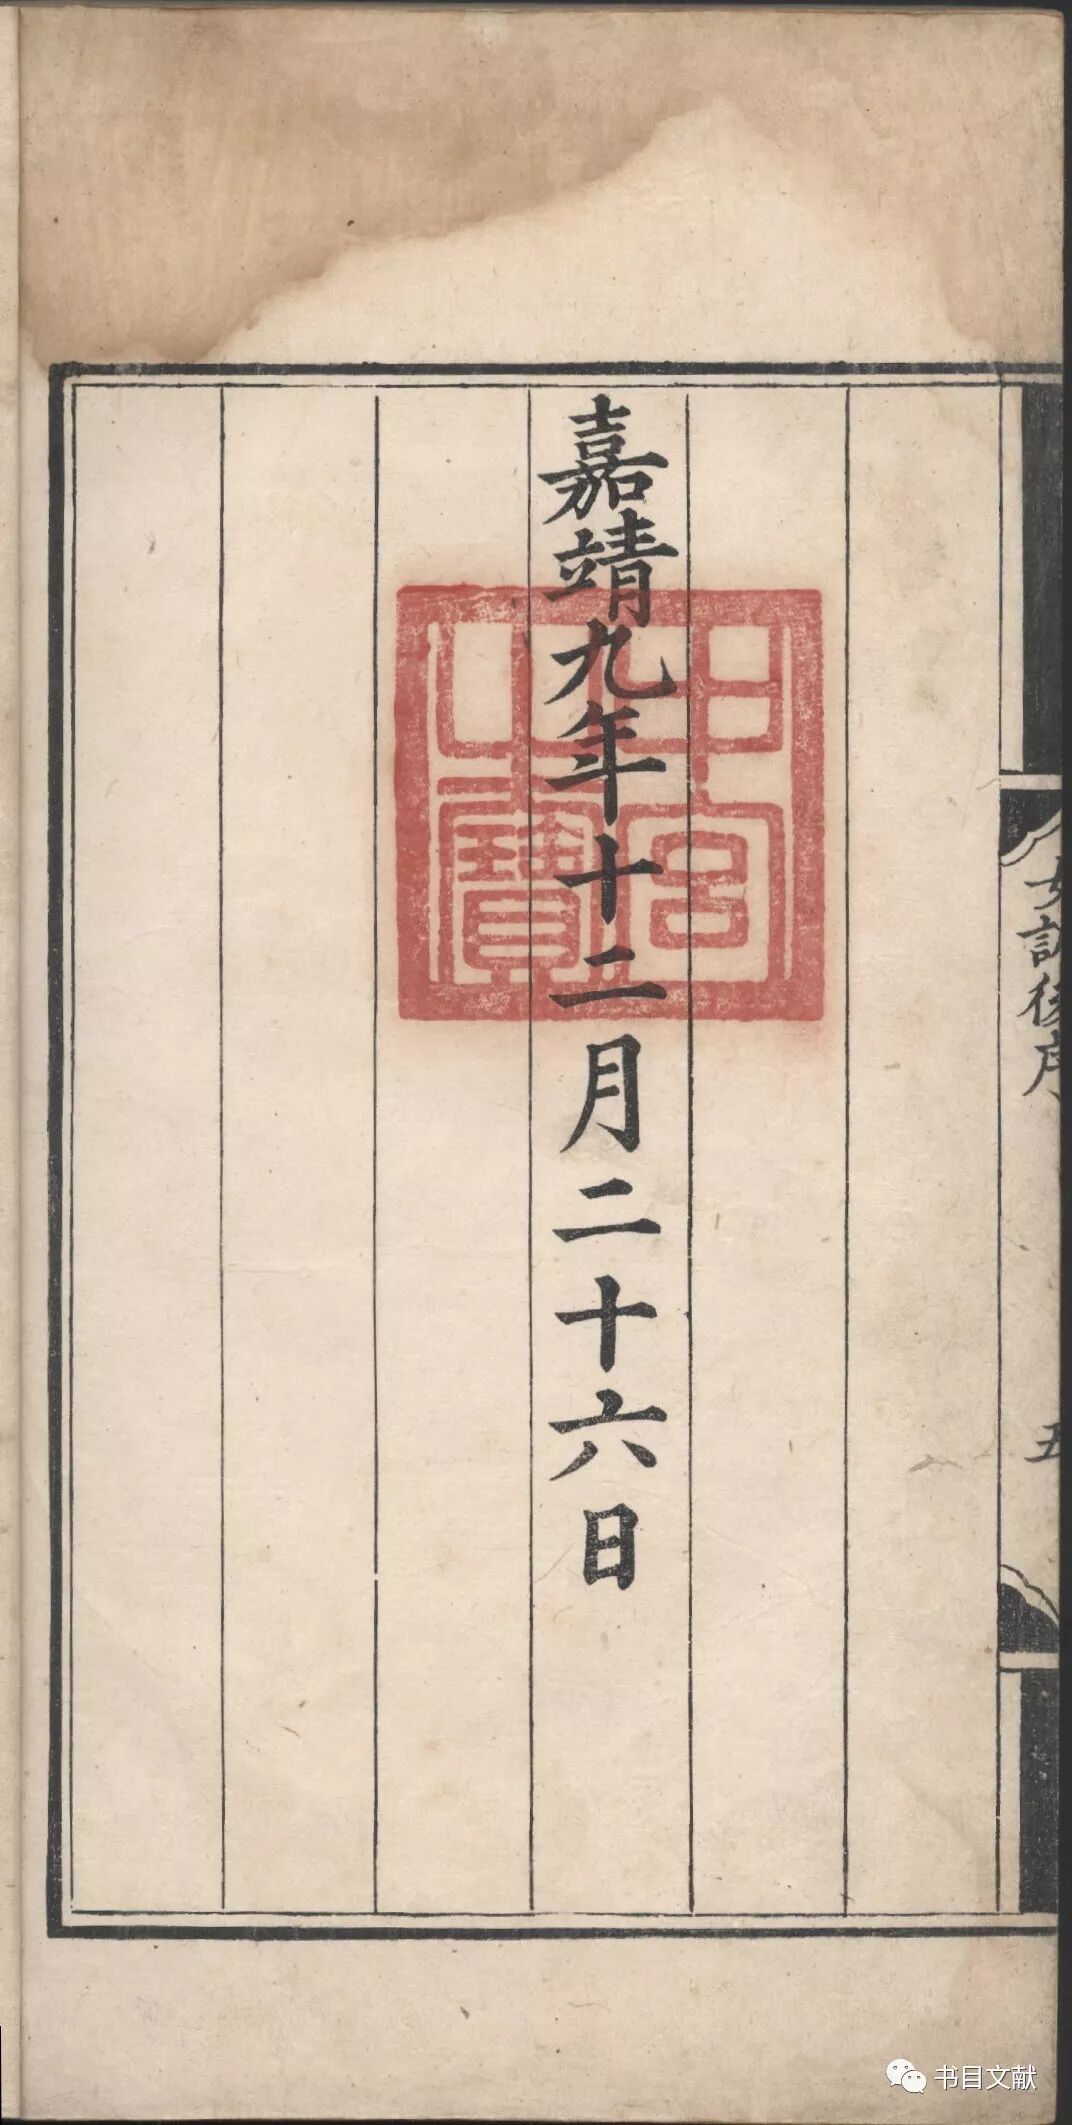 女訓後序
五
嘉靖九年十二月二十六日
中宮
之寶
书目文献